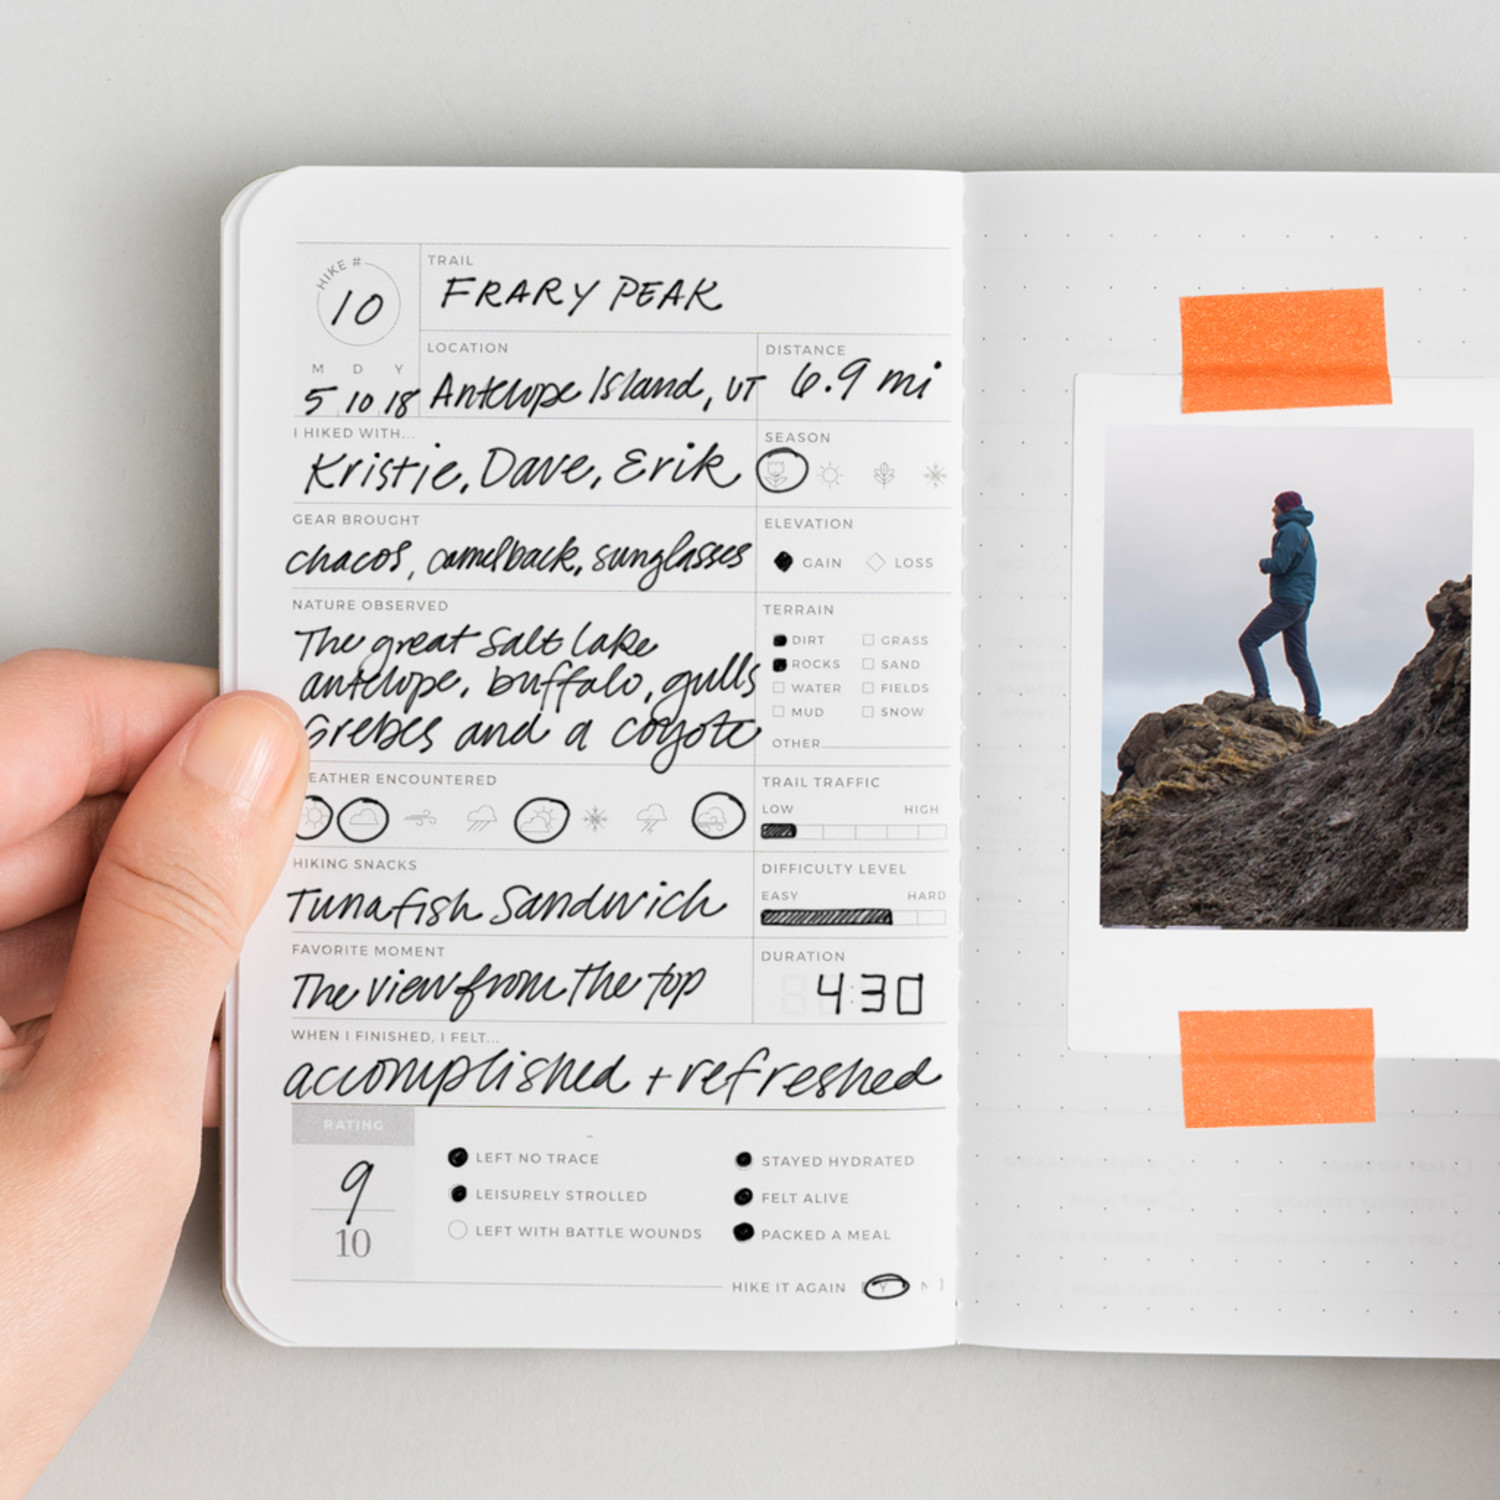 HIKE #
10
TRAIL
FRARY PEAK
M D Y
5 10 18
LOCATION
Antelope Island, UT
DISTANCE
6.9 mi
I HIKED WITH...
Kristie, Dave, Erik
SEASON
GEAR BROUGHT
chacos, camelback, sunglasses
ELEVATION
GAIN LOSS
NATURE OBSERVED
The great Salt lake
antelope, buffalo, gulls
Grebes and a coyote
TERRAIN
DIRT GRASS
ROCKS SAND
WATER FIELDS
MUD SNOW
OTHER
EATHER ENCOUNTERED
TRAIL TRAFFIC
LOW HIGH
HIKING SNACKS
Tunafish Sandwich
DIFFICULTY LEVEL
EASY HARD
FAVORITE MOMENT
The view from the top
DURATION
4:30
WHEN I FINISHED, I FELT...
accomplished + refreshed
RATING
9
10
LEFT NO TRACE
LEISURELY STROLLED
LEFT WITH BATTLE WOUNDS
STAYED HYDRATED
FELT ALIVE
PACKED A MEAL
HIKE IT AGAIN [ Y N ]